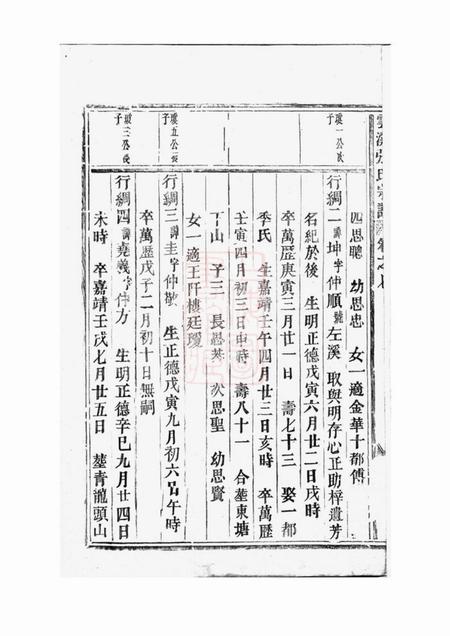 四思聰 幼思忠 女一適金華十都傅
虞一公次子
行綱二諱坤字仲順號左溪 取與明存心正助梓遺芳
名紀於後 生明正德戊寅六月廿二日戌時
卒萬歷庚寅三月廿一日 壽七十三 娶一都
季氏 生嘉靖壬午四月廿三日亥時 卒萬歷
壬寅四月初三日申時 壽八十一 合塟東塘
山 子三 長思 次思聖 幼思賢
女一適王阡樓廷璦
虞五公長子
行綱三諱圭字仲敬 生正德戊寅九月初六日午時
卒萬歷戊子二月初十日無嗣
虞三公長子
行綱四諱堯義字仲方 生明正德辛巳九月廿四日
未時 卒嘉靖壬戌七月廿五日 塟青龍頭山